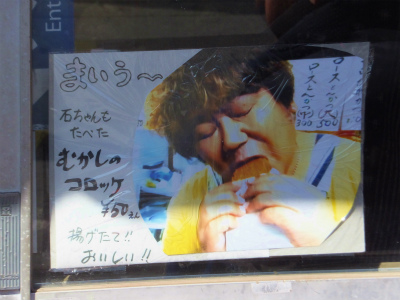 Ent
まいう〜
石ちゃんも
たべた
むかしの
コロッケ
¥50えん
揚げたて!!
おいしい!!
ロースとんかつ(大)500
ロースとんかつ(中)300